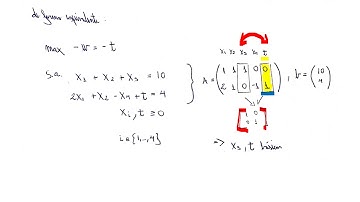 de forma equivalente:
max -w = -t
s.a. x₁ + x₂ + x₃ = 10
2x₁ + x₂ - x₄ + t = 4
xᵢ, t ≥ 0
i ∈ {1,..,4}
x₁ x₂ x₃ x₄ t
A = ( 1 1 1 0 0
2 1 0 -1 1 ) , b = ( 10
4 )
[ 1 0
0 1 ]
⇒ x₃, t básicas